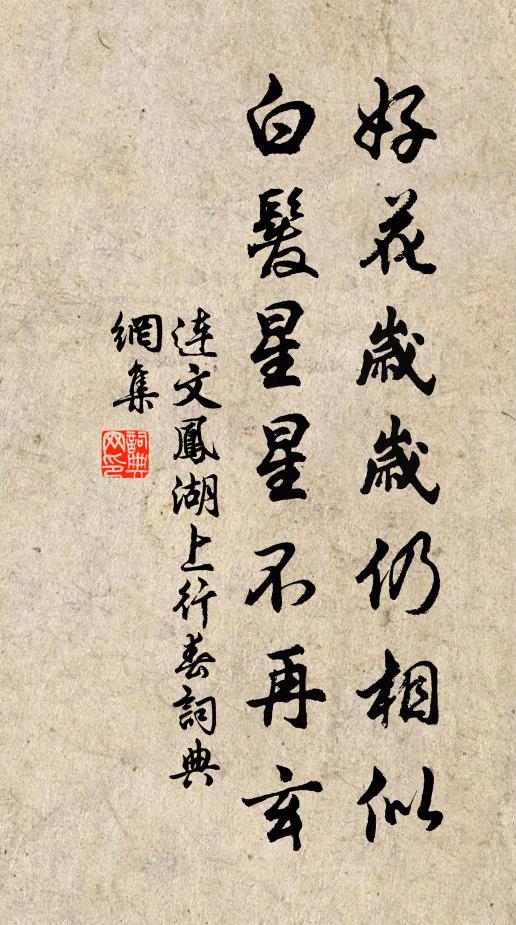 好花歲歲仍相似
白髮星星不再玄
連文鳳湖上行春詞典
網集
詞典網印